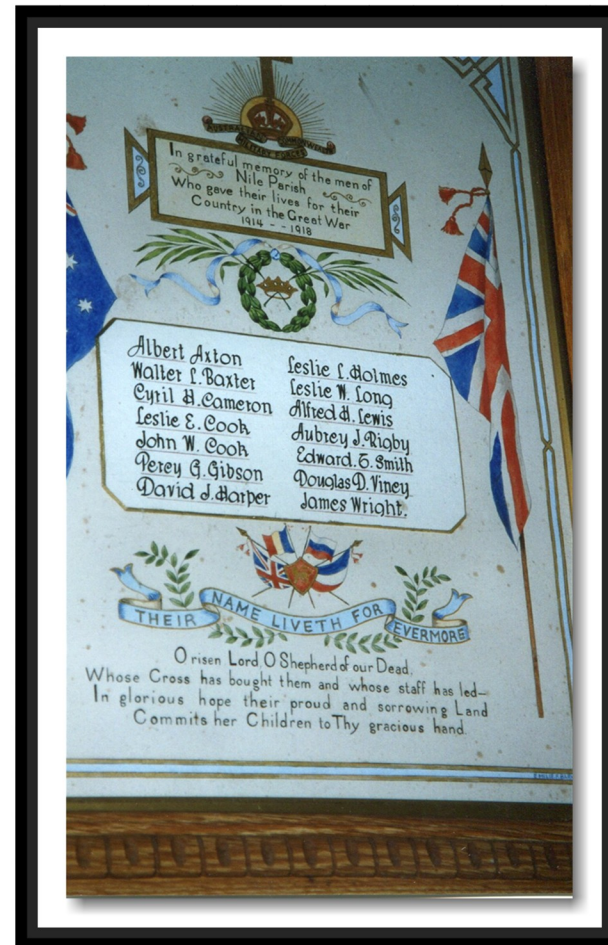 AUSTRALIAN COMMONWEALTH
MILITARY FORCES
In grateful memory of the men of
Nile Parish
Who gave their lives for their
Country in the Great War
1914 - - 1918
Albert Axton
Walter L. Baxter
Cyril H. Cameron
Leslie E. Cook
John W. Cook
Percy G. Gibson
David J. Harper
Leslie L. Holmes
Leslie W. Long
Alfred H. Lewis
Aubrey J. Rigby
Edward. G. Smith
Douglas D. Viney
James Wright.
THEIR NAME LIVETH FOR EVERMORE
O risen Lord, O Shepherd of our Dead,
Whose Cross has bought them and whose staff has led—
In glorious hope their proud and sorrowing Land
Commits her Children to Thy gracious hand